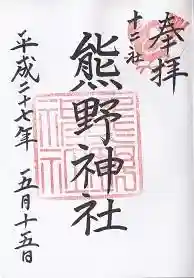 奉拝
十二社
熊野神社
平成二十七年 五月十五日